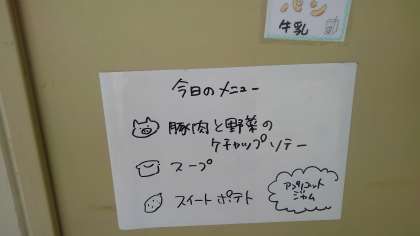 パン
牛乳
今日のメニュー
豚肉と野菜の
ケチャップソテー
スープ
スイートポテト
アプリコット
ジャム